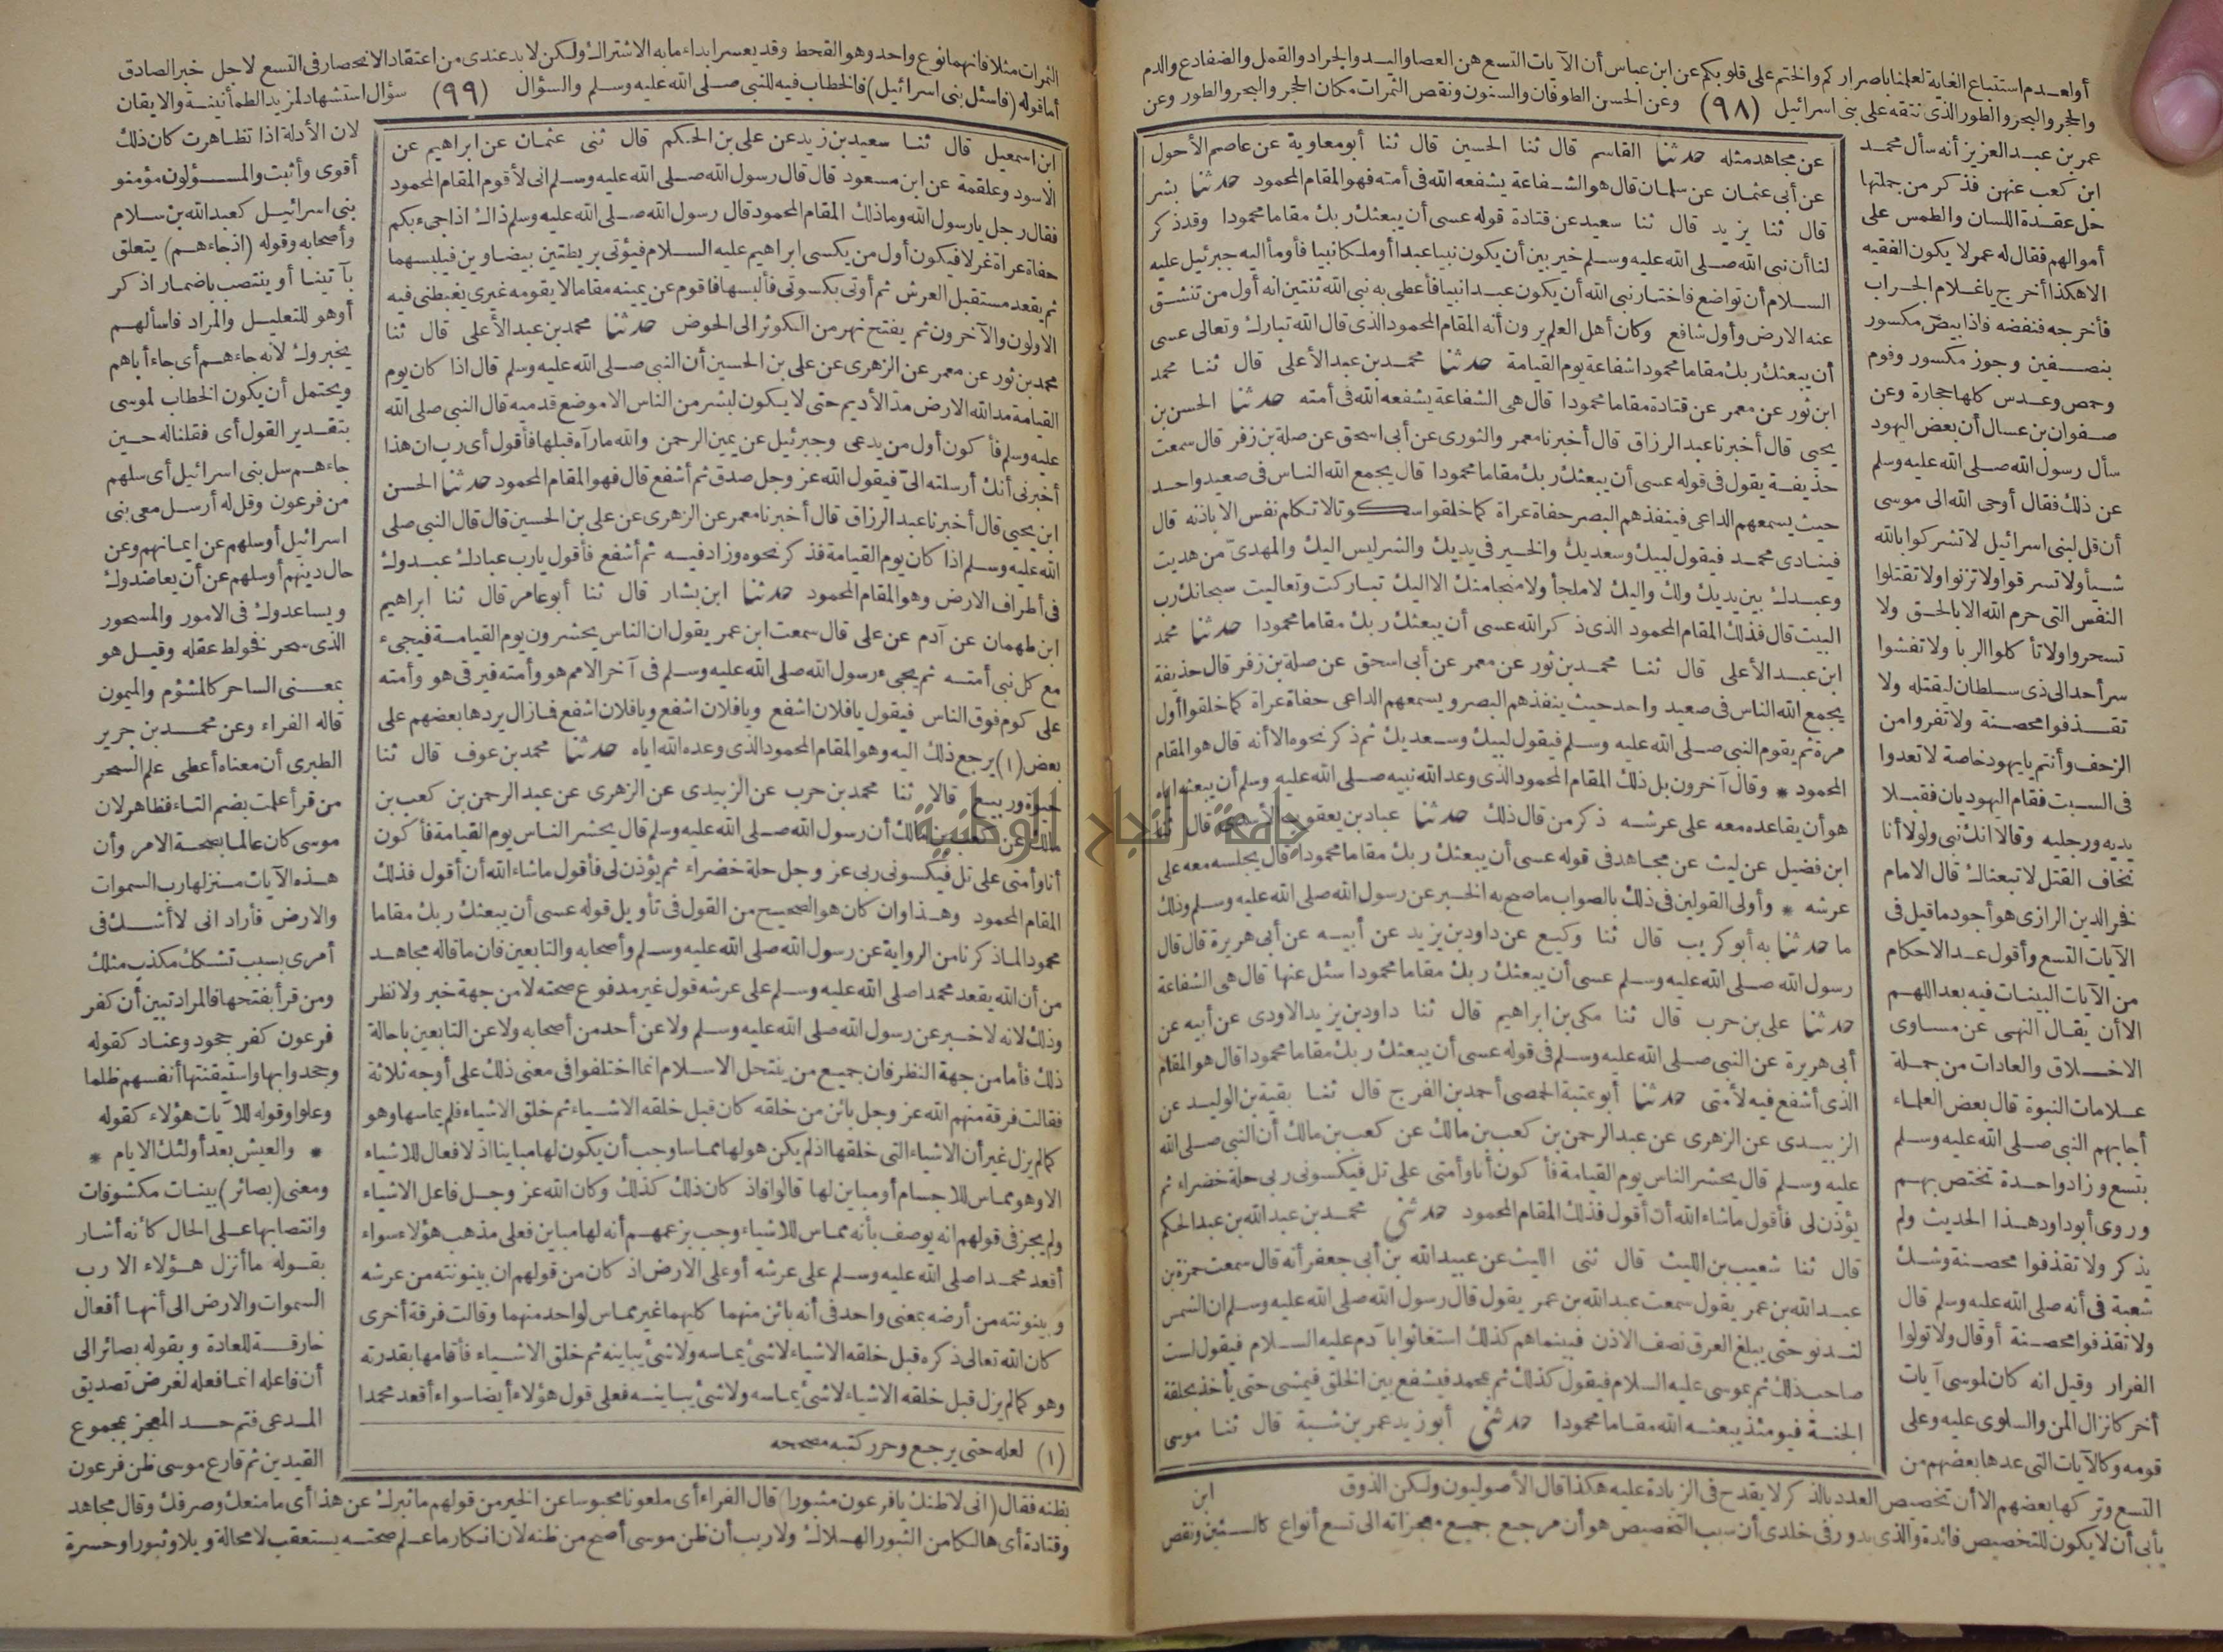 أولعدم استتباع الغاية لعلمنا باصراركم والختم على قلوبكم عن ابن عباس أن الآيات التسع هن العصا واليد والجراد والقمل والضفادع والدم
والحجر والبحر والطور الذى نتقه على بنى اسرائيل (٩٨) وعن الحسن الطوفان والسنون ونقص الثمرات مكان الحجر والبحر والطور وعن
عمر بن عبد العزيز أنه سأل محمد
ابن كعب عنهن فذكر من جملتها
حل عقدة اللسان والطمس على
أموالهم فقال له عمر لا يكون الفقيه
الا هكذا أخرج يا غلام الجراب
فأخرجه فنفضه فاذا بيض مكسور
بنصفين وجوز مكسور وفوم
وحمص وعدس كلها حجارة وعن
صفوان بن عسال أن بعض اليهود
سأل رسول الله صلى الله عليه وسلم
عن ذلك فقال أوحى الله الى موسى
أن قل لبنى اسرائيل لا تشركوا بالله
شيأ ولا تسرقوا ولا تزنوا ولا تقتلوا
النفس التى حرم الله الا بالحق ولا
تسحروا ولا تأكلوا الربا ولا تفشوا
سر أحد الى ذى سلطان ليقتله ولا
تقذفوا محصنة ولا تفروا من
الزحف وأنتم يا يهود خاصة لا تعدوا
فى السبت فقام اليهوديان فقبلا
يديه ورجليه وقالا انك نبى ولولا أنا
نخاف القتل لاتبعناك قال الامام
نفر الدين الرازى هو أجود ما قيل فى
الآيات التسع وأقول عد الاحكام
من الآيات البينات فيه بعد اللهم
الا أن يقال النهى عن مساوى
الاخلاق والعادات من جملة
علامات النبوة قال بعض العلماء
أجابهم النبى صلى الله عليه وسلم
بتسع وزاد واحدة تختص بهم
وروى أبو داود هذا الحديث ولم
يذكر ولا تقذفوا محصنة وشك
شعبة فى أنه صلى الله عليه وسلم قال
ولا تقذفوا محصنة أو قال ولا تولوا
الفرار وقيل انه كان لموسى آيات
أخر كانزال المن والسلوى عليه وعلى
قومه وكالآيات التى عدها بعضهم من
عن مجاهد مثله حدثنا القاسم قال ثنا الحسين قال ثنا أبو معاوية عن عاصم الأحول
عن أبى عثمان عن سلمان قال هو الشفاعة يشفعه الله فى أمته فهو المقام المحمود حدثنا بشر
قال ثنا يزيد قال ثنا سعيد عن قتادة قوله عسى أن يبعثك ربك مقاما محمودا وقد ذكر
لنا أن نبى الله صلى الله عليه وسلم خير بين أن يكون نبيا عبدا أو ملكا نبيا فأومأ اليه جبرئيل عليه
السلام أن تواضع فاختار نبى الله أن يكون عبدا نبيا فأعطى به نبى الله ثنتين انه أول من تنشق
عنه الارض وأول شافع وكان أهل العلم يرون أنه المقام المحمود الذى قال الله تبارك وتعالى عسى
أن يبعثك ربك مقاما محمودا شفاعة يوم القيامة حدثنا محمد بن عبد الأعلى قال ثنا محمد
ابن ثور عن معمر عن قتادة مقاما محمودا قال هى الشفاعة يشفعه الله فى أمته حدثنا الحسن بن
يحيى قال أخبرنا عبد الرزاق قال أخبرنا معمر والثورى عن أبى اسحق عن صلة بن زفر قال سمعت
حذيفة يقول فى قوله عسى أن يبعثك ربك مقاما محمودا قال يجمع الله الناس فى صعيد واحد
حيث يسمعهم الداعى فينفذهم البصر حفاة عراة كما خلقوا سكوتا لا تكلم نفس الا باذنه قال
فينادى محمد فيقول لبيك وسعديك والخير فى يديك والشر ليس اليك والمهدىّ من هديت
وعبدك بين يديك ولك واليك لا ملجأ ولا منجا منك الا اليك تباركت وتعاليت سبحانك رب
البيت قال فذلك المقام المحمود الذى ذكر الله عسى أن يبعثك ربك مقاما محمودا حدثنا محمد
ابن عبد الأعلى قال ثنا محمد بن ثور عن معمر عن أبى اسحق عن صلة بن زفر قال حذيفة
يجمع الله الناس فى صعيد واحد حيث ينفذهم البصر ويسمعهم الداعى حفاة عراة كما خلقوا أول
مرة ثم يقوم النبى صلى الله عليه وسلم فيقول لبيك وسعديك ثم ذكر نحوه الا أنه قال هو المقام
المحمود * وقال آخرون بل ذلك المقام المحمود الذى وعد الله نبيه صلى الله عليه وسلم أن يبعثه اياه
هو أن يقاعده معه على عرشه ذكر من قال ذلك حدثنا عباد بن يعقوب الأسدى قال ثنا
ابن فضيل عن ليث عن مجاهد فى قوله عسى أن يبعثك ربك مقاما محمودا قال يجلسه معه على
عرشه * وأولى القولين فى ذلك بالصواب ما صح به الخبر عن رسول الله صلى الله عليه وسلم وذلك
ما حدثنا به أبو كريب قال ثنا وكيع عن داود بن يزيد عن أبيه عن أبى هريرة قال قال
رسول الله صلى الله عليه وسلم عسى أن يبعثك ربك مقاما محمودا سئل عنها قال هى الشفاعة
حدثنا على بن حرب قال ثنا مكى بن ابراهيم قال ثنا داود بن يزيد الاودى عن أبيه عن
أبى هريرة عن النبى صلى الله عليه وسلم فى قوله عسى أن يبعثك ربك مقاما محمودا قال هو المقام
الذى أشفع فيه لأمتى حدثنا أبو عتبة الحمصى أحمد بن الفرج قال ثنا بقية بن الوليد عن
الزبيدى عن الزهرى عن عبد الرحمن بن كعب بن مالك عن كعب بن مالك أن النبى صلى الله
عليه وسلم قال يحشر الناس يوم القيامة فأكون أنا وأمتى على تل فيكسونى ربى حلة خضراء ثم
يؤذن لى فأقول ما شاء الله أن أقول فذلك المقام المحمود حدثنى محمد بن عبد الله بن عبد الحكم
قال ثنا شعيب بن الليث قال ثنى الليث عن عبيد الله بن أبى جعفر أنه قال سمعت حمزة بن
عبد الله بن عمر يقول سمعت عبد الله بن عمر يقول قال رسول الله صلى الله عليه وسلم ان الشمس
لتدنو حتى يبلغ العرق نصف الاذن فبينما هم كذلك استغاثوا بآدم عليه السلام فيقول لست
صاحب ذلك ثم بموسى عليه السلام فيقول كذلك ثم بمحمد فيشفع بين الخلق فيمشى حتى يأخذ بحلقة
الجنة فيومئذ يبعثه الله مقاما محمودا حدثنى أبو زيد عمر بن شبة قال ثنا موسى
ابن
التسع وتركها بعضهم الا أن تخصيص العدد بالذكر لا يقدح فى الزيادة عليه هكذا قال الأصوليون ولكن الذوق
يأبى أن لا يكون للتخصيص فائدة والذى يدور فى خلدى أن سبب التخصيص هو أن مرجع جميع معجزاته الى تسع أنواع كالسنين ونقص
الثمرات مثلا فانهما نوع واحد وهو القحط وقد يعسر ابداء ما به الاشتراك ولكن لا بد عندى من اعتقاد الانحصار فى التسع لاجل خبر الصادق
أما قوله (فاسئل بنى اسرائيل) فالخطاب فيه للنبى صلى الله عليه وسلم والسؤال (٩٩) سؤال استشهاد لمزيد الطمأنينة والايقان
لان الأدلة اذا تظاهرت كان ذلك
أقوى وأثبت والمسؤلون مؤمنو
بنى اسرائيل كعبد الله بن سلام
وأصحابه وقوله (اذ جاءهم) يتعلق
بآتينا أو ينتصب باضمار اذكر
أو هو للتعليل والمراد فاسألهم
يخبروك لانه جاءهم أى جاء أباهم
ويحتمل أن يكون الخطاب لموسى
بتقدير القول أى فقلنا له حين
جاءهم سل بنى اسرائيل أى سلهم
من فرعون وقل له أرسل معى بنى
اسرائيل أو سلهم عن ايمانهم وعن
حال دينهم أو سلهم عن أن يعاضدوك
ويساعدوك فى الامور والمسحور
الذى سحر فخولط عقله وقيل هو
بمعنى الساحر كالمشؤم والميمون
قاله الفراء وعن محمد بن جرير
الطبرى أن معناه أعطى علم السحر
من قرأ علمت بضم التاء فظاهر لان
موسى كان عالما بصحة الامر وأن
هذه الآيات منزلها رب السموات
والارض فأراد انى لا أشك فى
أمرى بسبب تشكك مكذب مثلك
ومن قرأ بفتحها فالمراد تبين أن كفر
فرعون كفر جحود وعناد كقوله
وجحدوا بها واستيقنتها أنفسهم ظلما
وعلوا وقوله للآيات هؤلاء كقوله
* والعيش بعد أولئك الايام *
ومعنى (بصائر) بينات مكشوفات
وانتصابها على الحال كأنه أشار
بقوله ما أنزل هؤلاء الا رب
السموات والارض الى أنها أفعال
خارقة للعادة وبقوله بصائر الى
أن فاعله انما فعله لغرض تصديق
المدعى فتم حد المعجز بمجموع
القيدين ثم قارع موسى ظن فرعون
ابن اسمعيل قال ثنا سعيد بن زيد عن على بن الحكم قال ثنى عثمان عن ابراهيم عن
الأسود وعلقمة عن ابن مسعود قال قال رسول الله صلى الله عليه وسلم انى لأقوم المقام المحمود
فقال رجل يا رسول الله وما ذلك المقام المحمود قال رسول الله صلى الله عليه وسلم ذاك اذا جىء بكم
حفاة عراة غرلا فيكون أول من يكسى ابراهيم عليه السلام فيؤتى بريطتين بيضاوين فيلبسهما
ثم يقعد مستقبل العرش ثم أوتى بكسوتى فألبسها فأقوم عن يمينه مقاما لا يقومه غيرى يغبطنى فيه
الاولون والآخرون ثم يفتح نهر من الكوثر الى الحوض حدثنا محمد بن عبد الأعلى قال ثنا
محمد بن ثور عن معمر عن الزهرى عن على بن الحسين أن النبى صلى الله عليه وسلم قال اذا كان يوم
القيامة مد الله الارض مد الأديم حتى لا يكون لبشر من الناس الا موضع قدميه قال النبى صلى الله
عليه وسلم فأكون أول من يدعى وجبرئيل عن يمين الرحمن والله ما رآه قبلها فأقول أى رب ان هذا
أخبرنى أنك أرسلته الىّ فيقول الله عز وجل صدق ثم أشفع قال فهو المقام المحمود حدثنا الحسن
ابن يحيى قال أخبرنا عبد الرزاق قال أخبرنا معمر عن الزهرى عن على بن الحسين قال قال النبى صلى
الله عليه وسلم اذا كان يوم القيامة فذكر نحوه وزاد فيه ثم أشفع فأقول يا رب عبادك عبدوك
فى أطراف الارض وهو المقام المحمود حدثنا ابن بشار قال ثنا أبو عامر قال ثنا ابراهيم
ابن طهمان عن آدم عن على قال سمعت ابن عمر يقول ان الناس يحشرون يوم القيامة فيجىء
مع كل نبى أمته ثم يجىء رسول الله صلى الله عليه وسلم فى آخر الامم هو وأمته فيرقى هو وأمته
على كوم فوق الناس فيقول يا فلان اشفع ويا فلان اشفع ويا فلان اشفع فما زال يردها بعضهم على
بعض (١) يرجع ذلك اليه وهو المقام المحمود الذى وعده الله اياه حدثنا محمد بن عوف قال ثنا
حيوة وربيع قالا ثنا محمد بن حرب عن الزبيدى عن الزهرى عن عبد الرحمن بن كعب بن
مالك عن كعب بن مالك أن رسول الله صلى الله عليه وسلم قال يحشر الناس يوم القيامة فأكون
أنا وأمتى على تل فيكسونى ربى عز وجل حلة خضراء ثم يؤذن لى فأقول ما شاء الله أن أقول فذلك
المقام المحمود وهذا وان كان هو الصحيح من القول فى تأويل قوله عسى أن يبعثك ربك مقاما
محمودا لما ذكرنا من الرواية عن رسول الله صلى الله عليه وسلم وأصحابه والتابعين فان ما قاله مجاهد
من أن الله يقعد محمدا صلى الله عليه وسلم على عرشه قول غير مدفوع صحته لا من جهة خبر ولا نظر
وذلك لانه لا خبر عن رسول الله صلى الله عليه وسلم ولا عن أحد من أصحابه ولا عن التابعين باحالة
ذلك فأما من جهة النظر فان جميع من ينتحل الاسلام انما اختلفوا فى معنى ذلك على أوجه ثلاثة
فقالت فرقة منهم الله عز وجل بائن من خلقه كان قبل خلقه الاشياء ثم خلق الاشياء فلم يماسها وهو
كما لم يزل غير أن الاشياء التى خلقها اذ لم يكن هو لها مماسا وجب أن يكون لها مباينا اذ لا فعال للاشياء
الا وهو مماس للاجسام أو مباين لها قالوا فاذ كان ذلك كذلك وكان الله عز وجل فاعل الاشياء
ولم يجز فى قولهم انه يوصف بأنه مماس للاشياء وجب بزعمهم أنه لها مباين فعلى مذهب هؤلاء سواء
أقعد محمدا صلى الله عليه وسلم على عرشه أو على الارض اذ كان من قولهم ان بينونته من عرشه
وبينونته من أرضه بمعنى واحد فى أنه بائن منهما كليهما غير مماس لواحد منهما وقالت فرقة أخرى
كان الله تعالى ذكره قبل خلقه الاشياء لا شئ يماسه ولا شئ يباينه ثم خلق الاشياء فأقامها بقدرته
وهو كما لم يزل قبل خلقه الاشياء لا شئ يماسه ولا شئ يباينه فعلى قول هؤلاء أيضا سواء أقعد محمدا
(١) لعله حتى يرجع وحرر كتبه مصححه
بظنه فقال (انى لأظنك يا فرعون مثبورا) قال الفراء أى ملعونا محبوسا عن الخير من قولهم ما ثبرك عن هذا أى ما منعك وصرفك وقال مجاهد
وقتادة أى هالكا من الثبور الهلاك ولا ريب أن ظن موسى أصح من ظنه لان انكار ما علم صحته يستعقب لا محالة ويلا وثبورا وحسرة
جامعة النجاح الوطنية